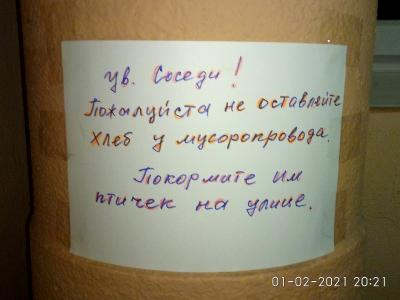 ув. Соседи!
Пожалуйста не оставляйте
хлеб у мусоропровода.
Покормите им
птичек на улице.
01-02-2021 20:21